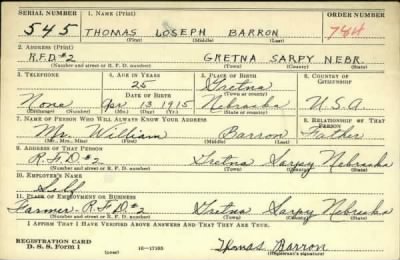 SERIAL NUMBER 1. NAME (Print) ORDER NUMBER
545 THOMAS LOSEPH BARRON 784
(First) (Middle) (Last)
2. ADDRESS (Print)
R.F.D #2 GRETNA SARPY NEBR.
(Number and street or R. F. D. number) (Town) (County) (State)
3. TELEPHONE 4. AGE IN YEARS 5. PLACE OF BIRTH 6. COUNTRY OF CITIZENSHIP
25 Gretna
DATE OF BIRTH (Town or county)
None Apr 13 1915 Nebraska U.S.A.
(Exchange) (Number) (Mo.) (Day) (Yr.) (State or country)
7. NAME OF PERSON WHO WILL ALWAYS KNOW YOUR ADDRESS 8. RELATIONSHIP OF THAT PERSON
Mr. William Barron Father
(Mr., Mrs., Miss) (First) (Middle) (Last)
9. ADDRESS OF THAT PERSON
R.F.D #2 Gretna Sarpy Nebraska
(Number and street or R. F. D. number) (Town) (County) (State)
10. EMPLOYER'S NAME
Self
11. PLACE OF EMPLOYMENT OR BUSINESS
Farmer-R.F.D #2 Gretna Sarpy Nebraska
(Number and street or R. F. D. number) (Town) (County) (State)
I AFFIRM THAT I HAVE VERIFIED ABOVE ANSWERS AND THAT THEY ARE TRUE.
REGISTRATION CARD
D. S. S. Form 1 (over) 16-17105 Thomas Barron
(Registrant's signature)